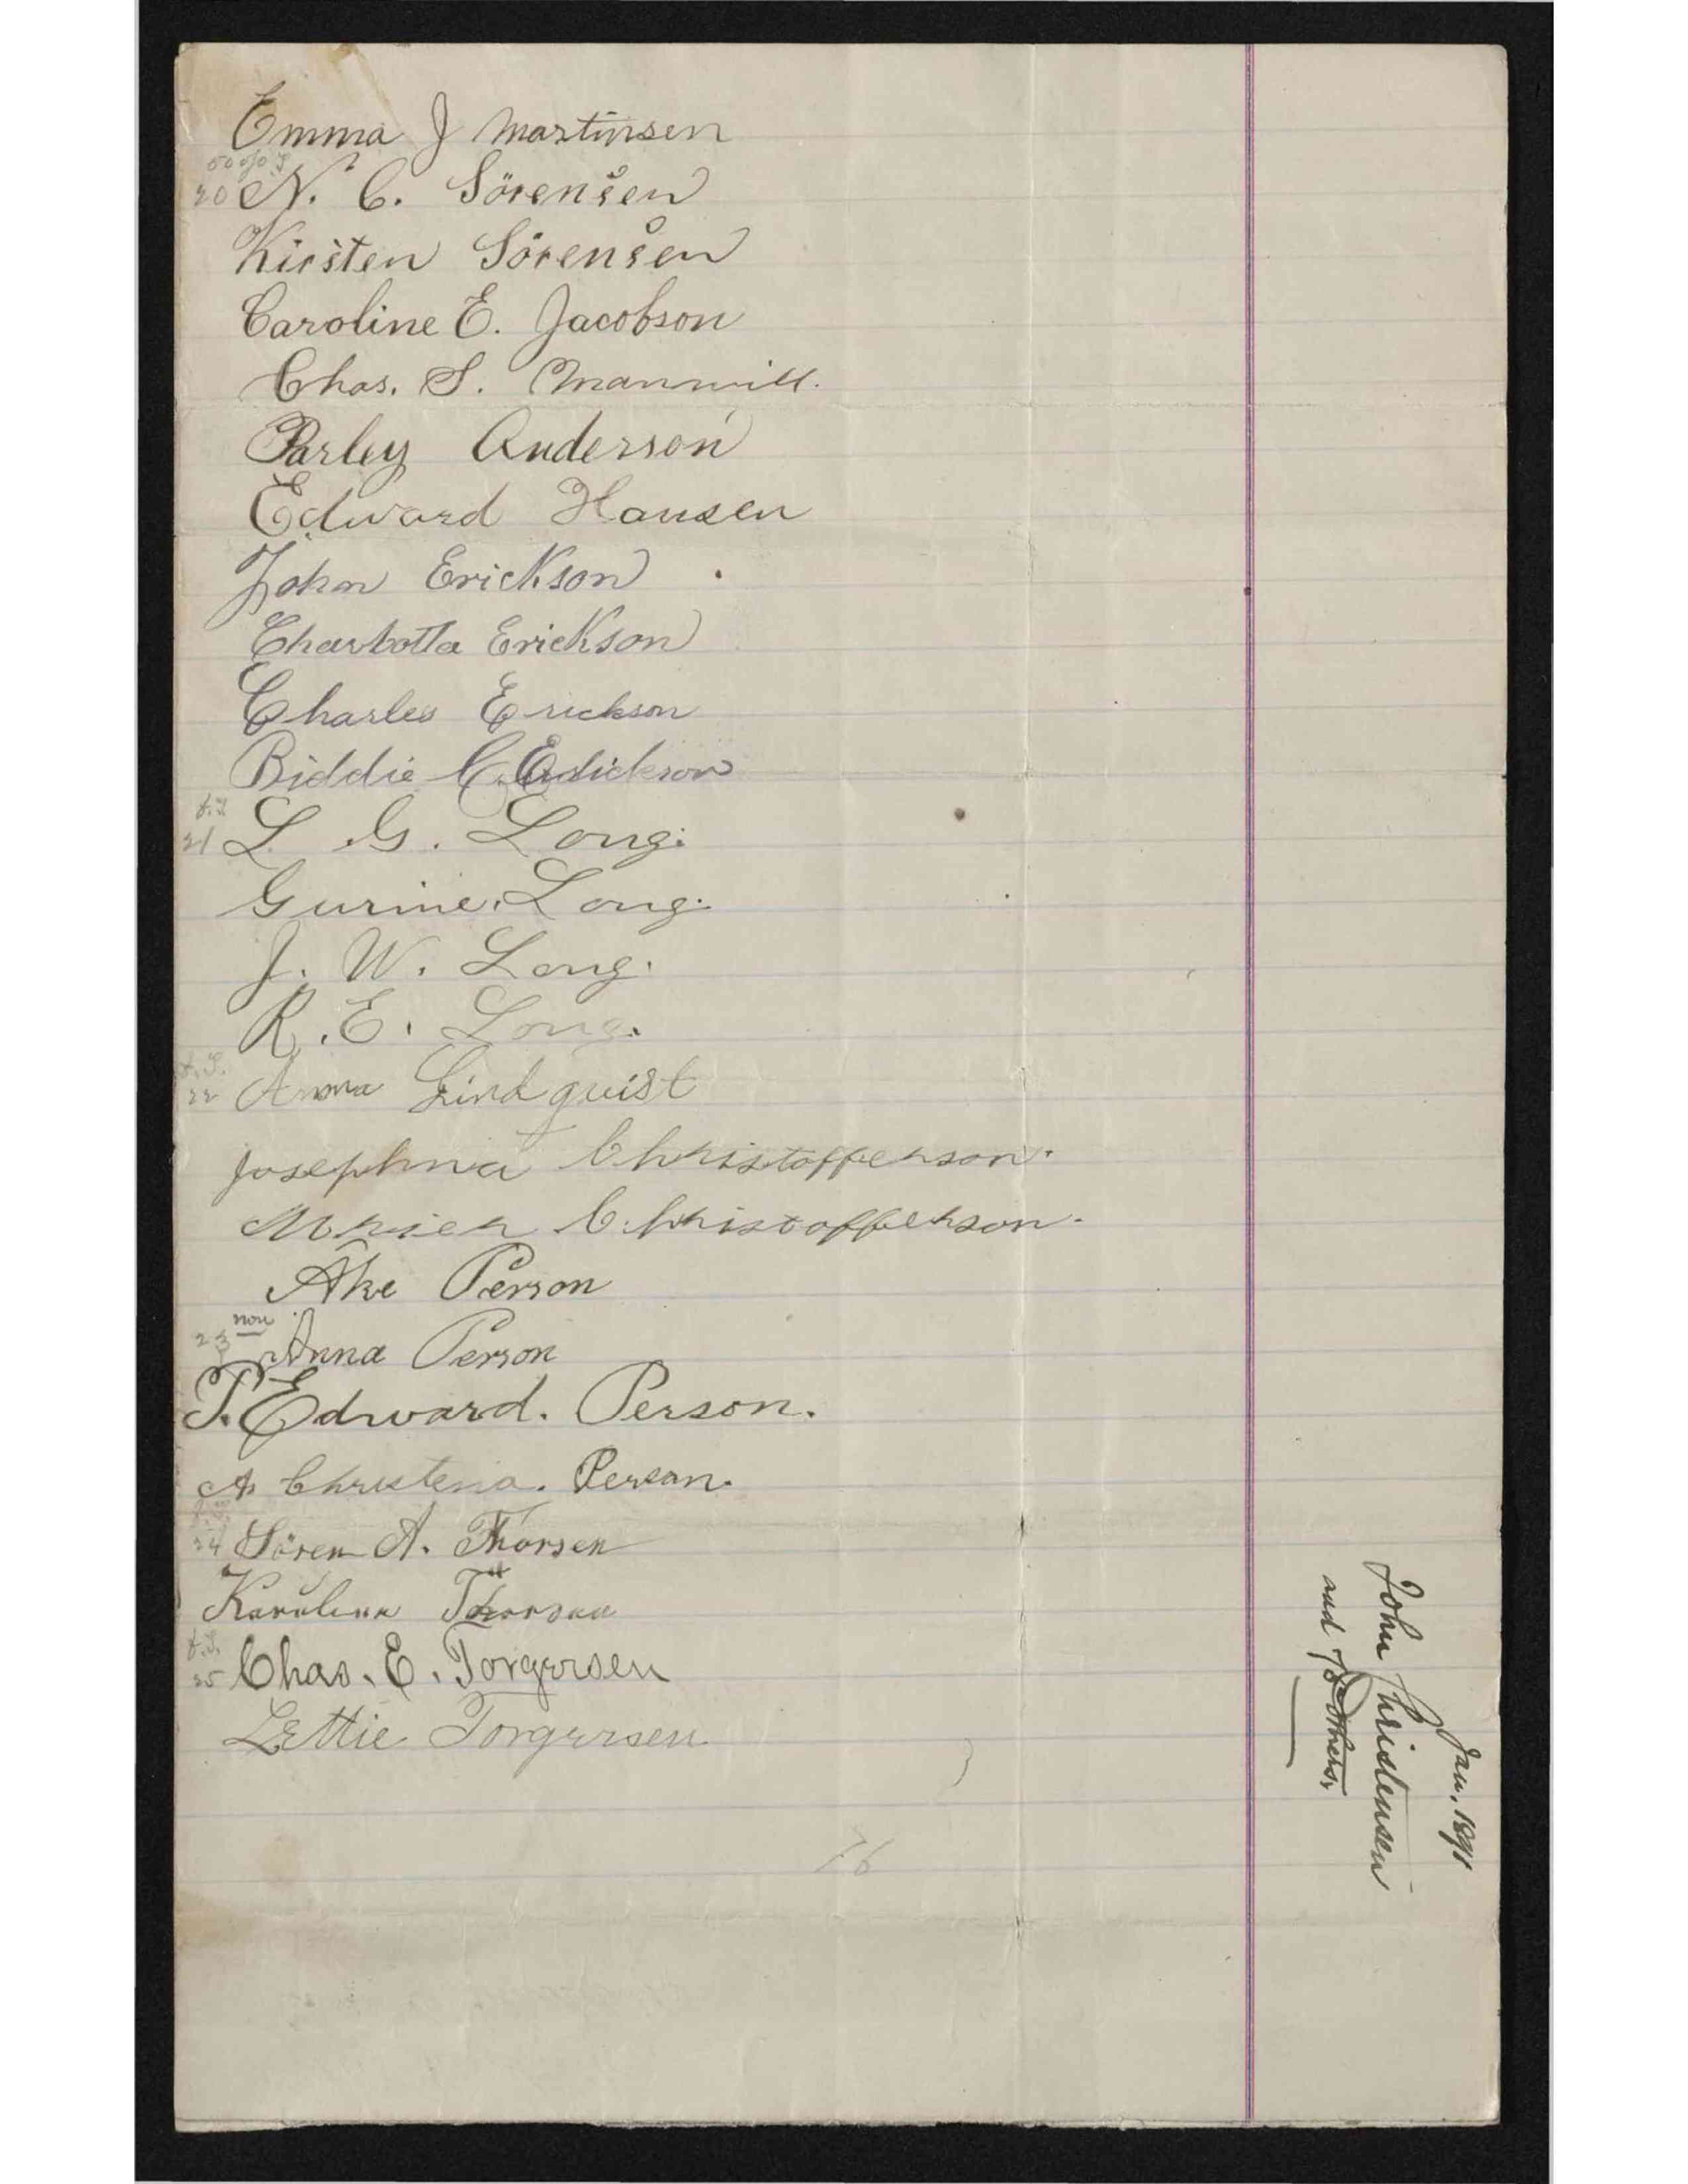 Emma J Martinsen
20 N. C. Sörensen
Kirsten Sörensen
Caroline E. Jacobson
Chas. S. Mannwill.
Parley Anderson
Edward Hansen
John Erickson
Charlotta Erickson
Charles Erickson
Biddie C.
21 L. G. Long.
Gurine. Long.
J. W. Long.
R. E. Long.
22 Anna Lindquist
Josephina Christofferson.
Christofferson.
Åke Person
non
23 Anna Person
P. Edward. Person.
A Christena. Person.
24 Sören A. Thorsen
Thorsen
25 Chas. E. Torgersen
Lettie Torgersen
76
Jan. 1891
John Christensen
and 75 others.